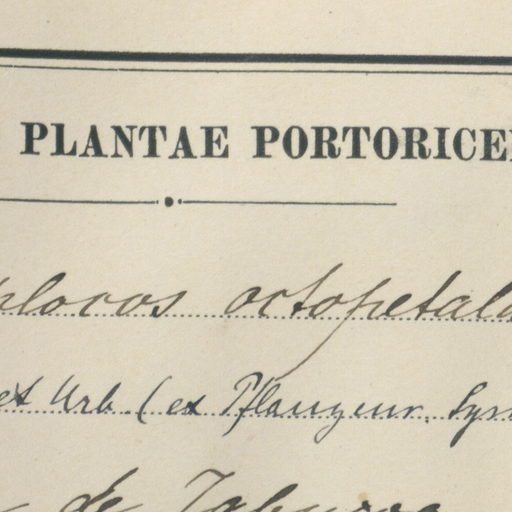 PLANTAE PORTORICE
plocos octopetala
et Urb. (ex Pflanzenr. Sym
de